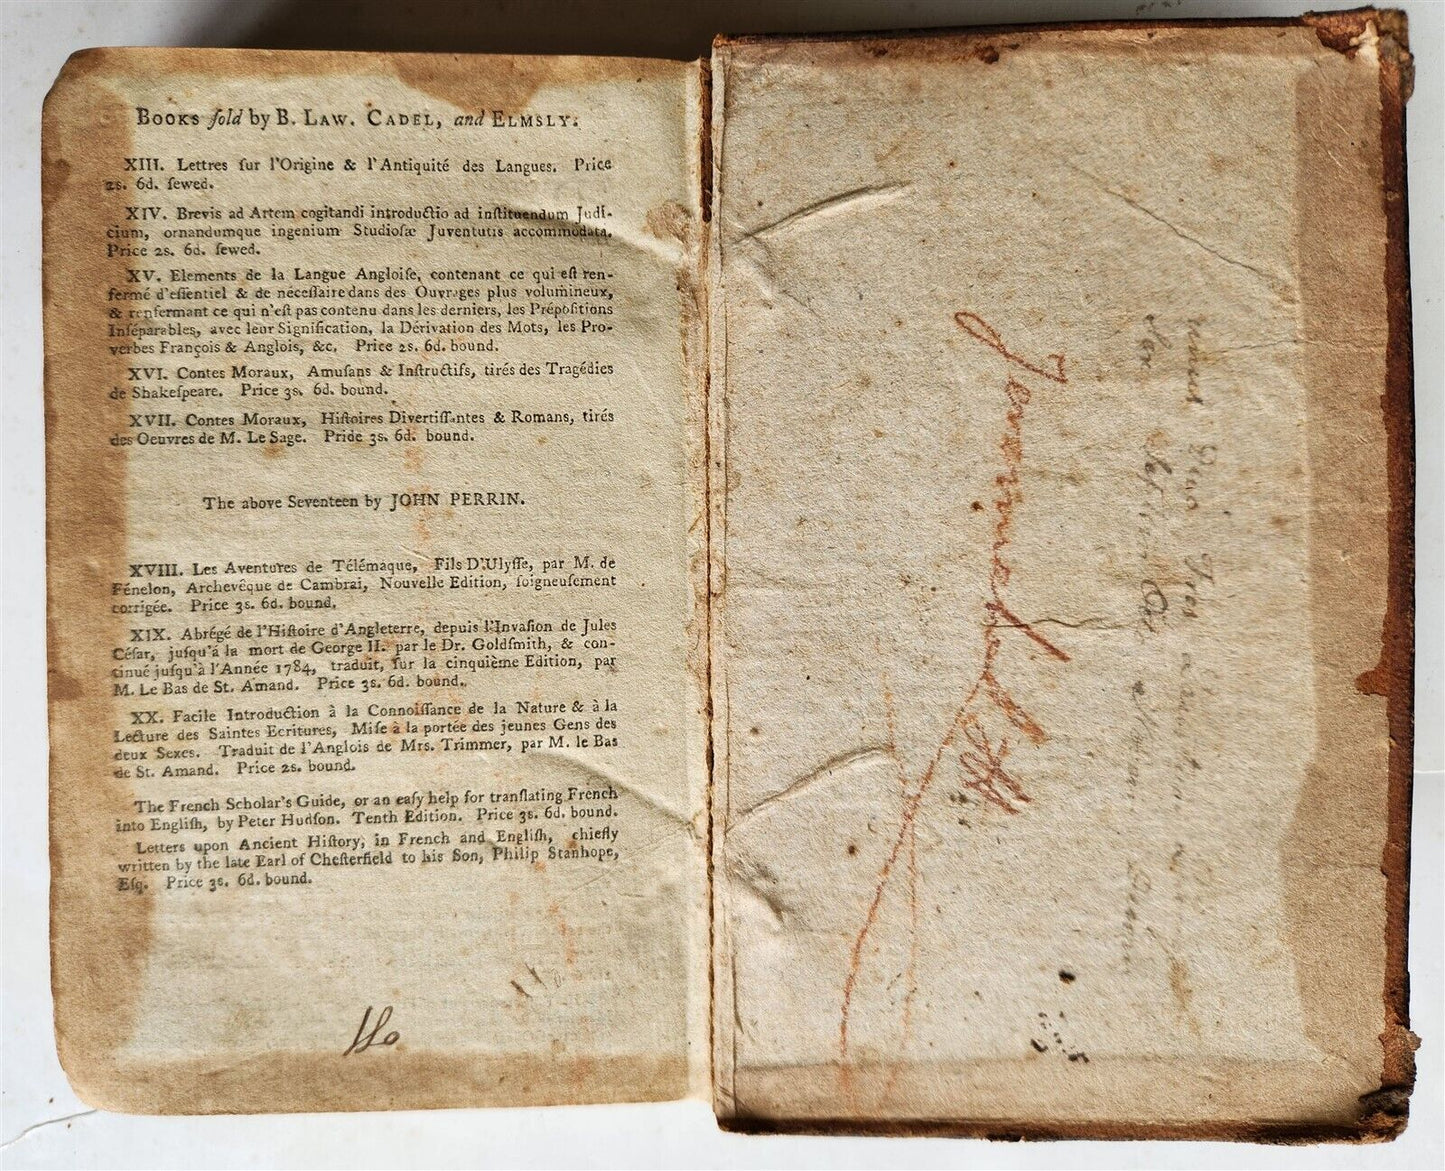 BOOKS ſold by B. LAW. CADEL, and ELMSLY.
XIII. Lettres ſur l'Origine & l'Antiquité des Langues. Price
2s. 6d. ſewed.
XIV. Brevis ad Artem cogitandi introductio ad inſtituendum Judi-
cium, ornandumque ingenium Studioſæ Juventutis accommodata.
Price 2s. 6d. ſewed.
XV. Elements de la Langue Angloiſe, contenant ce qui eſt ren-
fermé d'eſſentiel & de néceſſaire dans des Ouvrages plus volumineux,
& renfermant ce qui n'eſt pas contenu dans les derniers, les Prépoſitions
Inſéparables, avec leur Signification, la Dérivation des Mots, les Pro-
verbes François & Anglois, &c. Price 2s. 6d. bound.
XVI. Contes Moraux, Amuſans & Inſtructifs, tirés des Tragédies
de Shakeſpeare. Price 3s. 6d. bound.
XVII. Contes Moraux, Hiſtoires Divertiſſantes & Romans, tirés
des Oeuvres de M. Le Sage. Pride 3s. 6d. bound.
The above Seventeen by JOHN PERRIN.
XVIII. Les Aventures de Télémaque, Fils D'Ulyſſe, par M. de
Fénelon, Archevêque de Cambrai, Nouvelle Edition, ſoigneuſement
corrigée. Price 3s. 6d. bound.
XIX. Abrégé de l'Hiſtoire d'Angleterre, depuis l'Invaſion de Jules
Céſar, juſqu'á la mort de George II. par le Dr. Goldſmith, & con-
tinué juſqu'à l'Année 1784, traduit, ſur la cinquième Edition, par
M. Le Bas de St. Amand. Price 3s. 6d. bound.
XX. Facile Introduction à la Connoiſſance de la Nature & à la
Lecture des Saintes Ecritures, Miſe à la portée des jeunes Gens des
deux Sexes. Traduit de l'Anglois de Mrs. Trimmer, par M. le Bas
de St. Amand. Price 2s. bound.
The French Scholar's Guide, or an eaſy help for tranſlating French
into Engliſh, by Peter Hudſon. Tenth Edition. Price 3s. 6d. bound.
Letters upon Ancient Hiſtory, in French and Engliſh, chiefly
written by the late Earl of Cheſterfield to his Son, Philip Stanhope,
Eſq. Price 3s. 6d. bound.